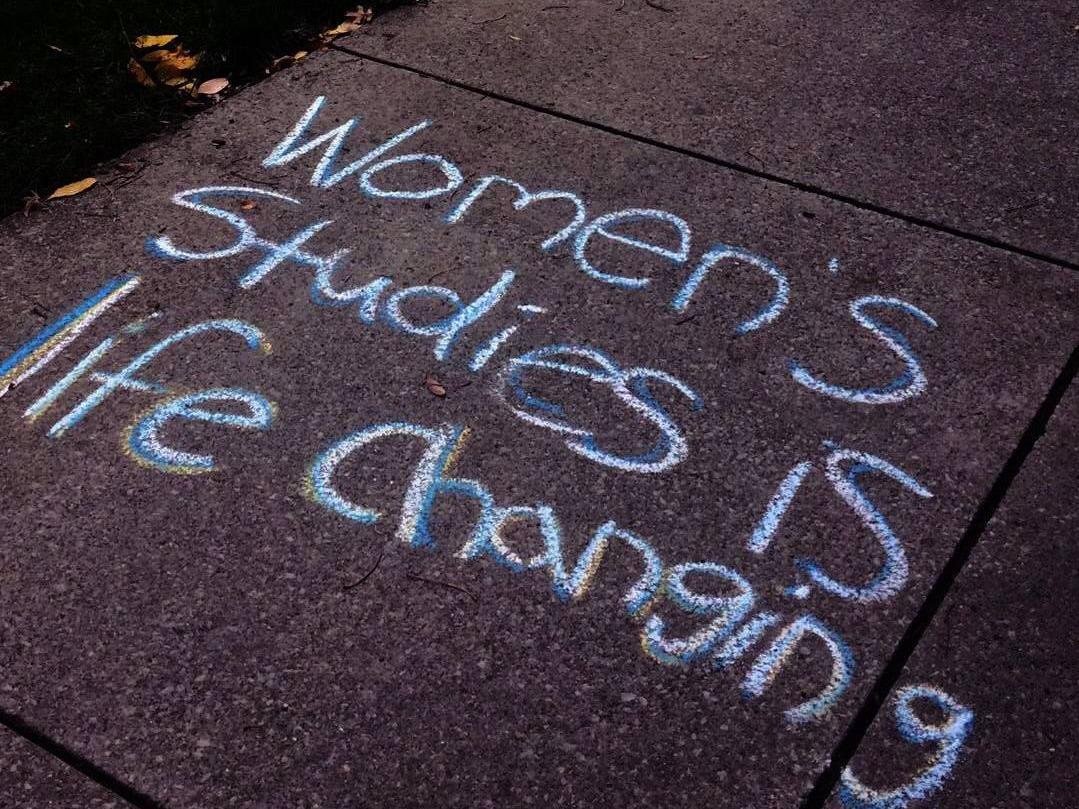 Women's
Studies is
life changing